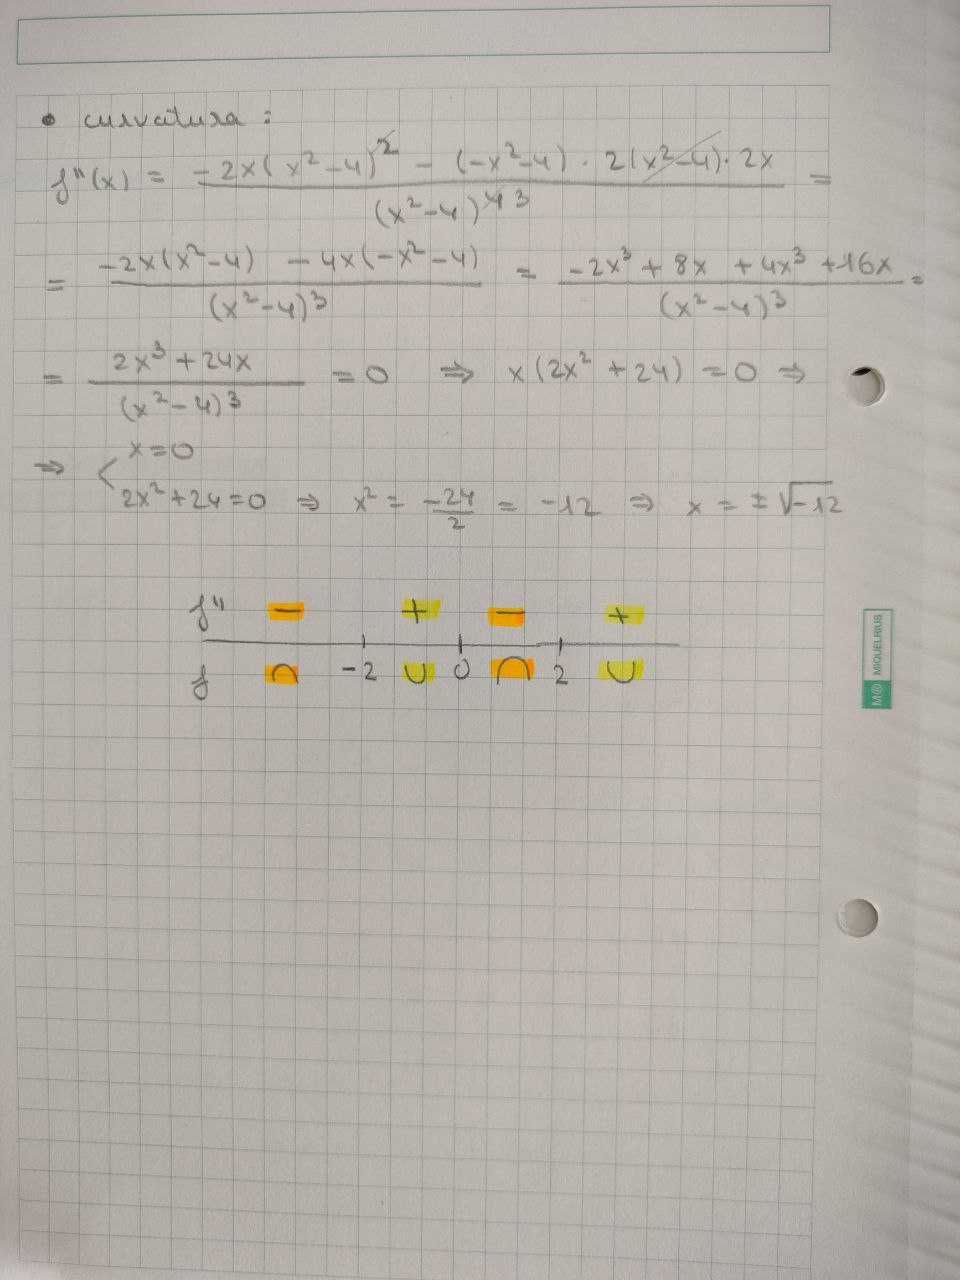 • curvatura:
f''(x) = -2x(x²-4)² - (-x²-4) · 2(x²-4) · 2x / (x²-4)⁴ ³ =
= -2x(x²-4) - 4x(-x²-4) / (x²-4)³ = -2x³ + 8x + 4x³ + 16x / (x²-4)³ =
= 2x³ + 24x / (x²-4)³ = 0 ⇒ x(2x² + 24) = 0 ⇒
⇒ < x=0
2x²+24=0 ⇒ x² = -24/2 = -12 ⇒ x = ±√-12
f'' - + - +
f ∩ -2 ∪ 0 ∩ 2 ∪
M® MIQUELRIUS